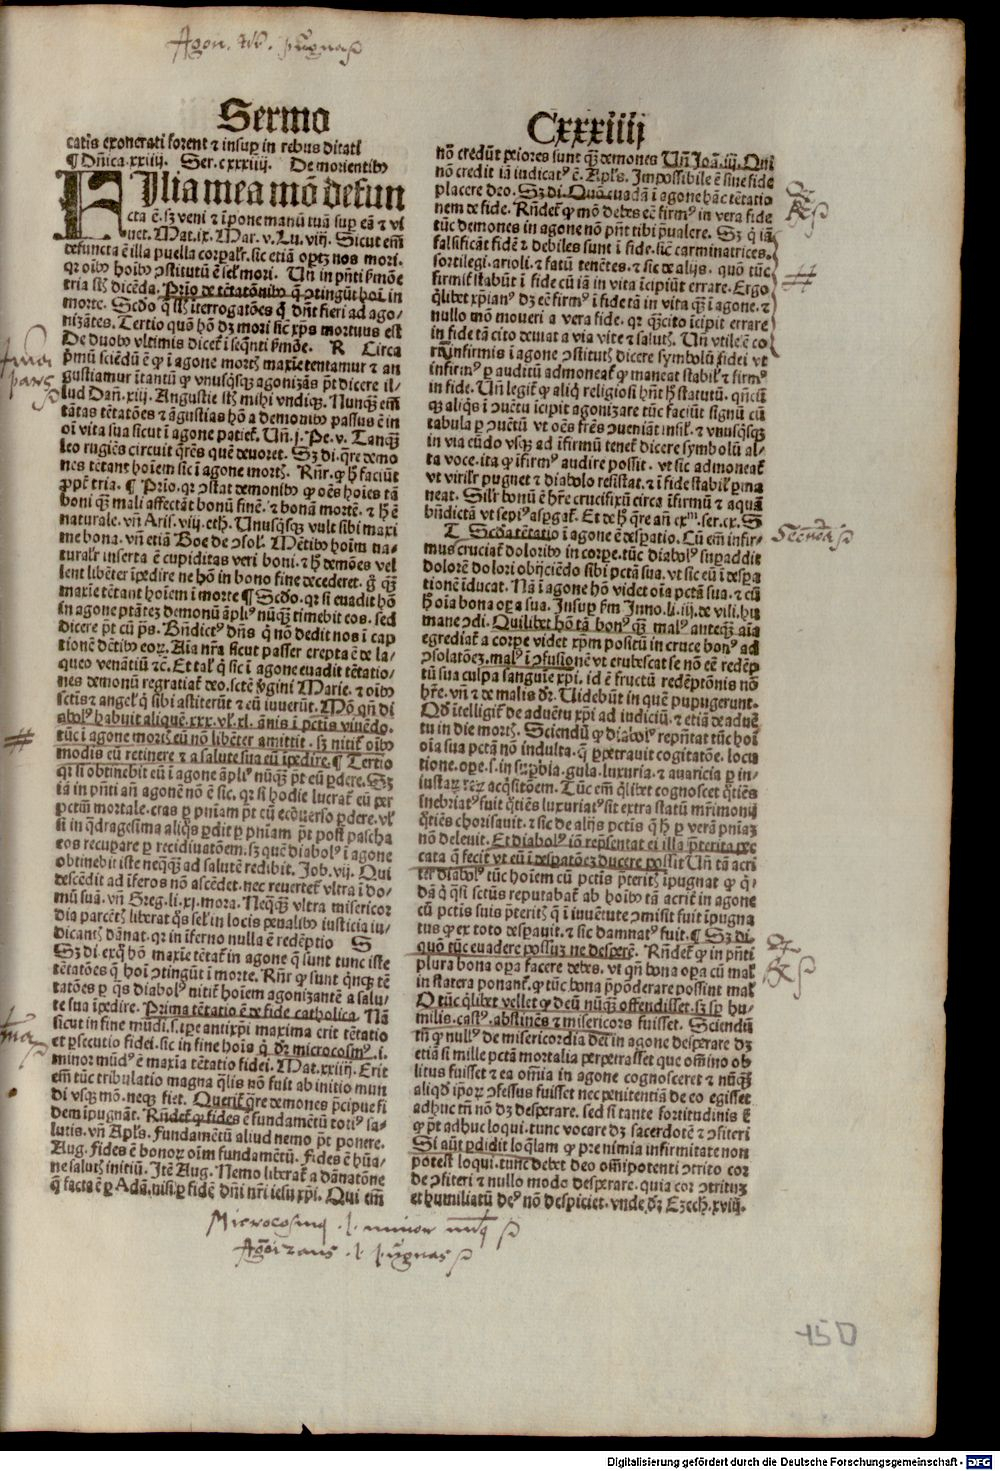 Agon. … pugna
Sermo
Cxxxiiij
catis exonerati forent ⁊ insup̱ in rebus ditati
¶ Dñica.xxiiij. Ser.cxxxiiij. De morientibꝰ
FIlia mea mō defun
cta ē.sꝫ veni ⁊ īpone manū tuā suꝑ eā ⁊ vi
uet. Mat.ix. Mar.v. Lu.viij. Sicut em̄
defuncta ē illa puella corꝑalr̄. sic etiā oꝑtꝫ nos mori.
morte. Scd̓o q̄
nizātes. Tertio quō hō dꝫ mori sic̄ xp̄s mortuus est
De duobꝰ vltimis dicet̄ ī seq̄nti s̓mōe. R Circa
pͥmū sciēdū ē ꝙ ī agone mortꝭ maxie tentamur ⁊ an
gustiamur ītantū ꝙ vnusq̄sqꝫ agonizās pōt dicere il/
lud Dan̄.xiij. Angustie sūt mihi vndiqꝫ. Nunqꝫ em̄
tātas tētatōes ⁊ āgustias hō a demonibꝰ passus ē in
oī vita sua sicut ī agone patiet̄. Vn̄.j. Pe.v. Tanqꝫ
leo rugiēs circuit q̄rēs quē deuoret. Sꝫ di. q̄re demo
nes tētant hoīem sic ī agone mortꝭ. Rn̄r. ꝙ h̓ faciūt
ꝓpt̓ tria. ¶ Prīo. qr ꝯstat demonibꝰ ꝙ oēs hoīes tā
boni qꝫ mali affectāt bonū finē. ⁊ bonā mortē. ⁊ h̓ ē
naturale. vn̄ Aris.viij.eth. Unusq̄sqꝫ vult sibi maxi
me bona. vn̄ etiā Boe de ꝯsol. Mētibꝰ hoīm na/
turalr̄ inserta ē cupiditas veri boni. ⁊ h̓ demōes vel
lent libēter īpedire ne hō in bono fine decederet. g̊ qꝫ
maxie tētant hoīem ī morte ¶ Scd̓o. qr si euadit hō
in agone ptātez demonū āpliꝰ nūqꝫ timebit eos. sed
dicere pōt cū ps. Bn̄dictꝰ dn̄s q̄ nō dedit nos ī cap
tionē dētibꝰ eoꝝ. Aīa nr̄a sicut passer erepta ē de la/
queo venātiū ⁊c̄. Et tal̄ q̄ sic ī agone euadit tētatio/
nes demonū regratiat̄ deo. sctē v̓gini Marie. ⁊ oībꝰ
sctis ⁊ angel̄ q̄ sibi astiterūt ⁊ eū iuuerūt. Mō qn̄ di
abolꝰ habuit aliquē.xxx.vl̓.xl. ānis ī pctīs viuēdo.
tūc ī agone mortꝭ eū nō libēter amittit. sꝫ nitit̄ oībꝰ
modis eū retinere ⁊ a salute sua eū īpedire. ¶ Tertio
qr si obtinebit eū ī agone āpliꝰ nūqꝫ pōt eū ꝑdere. Sꝫ
pctm̄ mortale. cras ꝑ pn̄iam pōt cū ecōuerso ꝑdere. vl̓
si in q̄dragesima aliq̄s ꝑdit ꝑ pn̄iam pōt post pascha
eos recupare ꝑ recidiuatōem. sꝫ quē diabolꝰ ī agone
obtinebit iste neqꝫqꝫ ad salutē redibit. Job.vij. Qui
descēdit ad īferos nō ascēdet. nec reuertet̄ vltra ī do/
mū suā. vn̄ Greg.li.xj.mora. Neqꝫqꝫ vltra misericor
dia parcētꝭ liberat q̄s sel̓ in locis penalibꝰ iusticia iu/
dicantꝭ dānat. qr in īferno nulla ē redēptio S
Sꝫ di. exq̄ hō maxie tētat̄ in agone q̄ sunt tunc iste
tētatōes q̄ hoī ꝯtingūt ī morte. Rn̄r ꝙ sunt q̄nqꝫ tē
tatōes ꝑ q̄s diabolꝰ nitit̄ hoīem agonizantē a salu/
te sua īpedire. Prima tētatio ē de fide catholica. Nā
sicut in fine mūdi.s.tp̄e antixp̄i maxima crit tētatio
et ꝑsecutio fidei. sic in fine hoīs q̄ dr̄ microcosmꝰ.i.
minor mūdꝰ ē maxīa tētatio fidei. Mat.xxiiij. Erit
em̄ tūc tribulatio magna q̄lis nō fuit ab initio mun
di vsqꝫ mō. neqꝫ fiet. Querit̄ q̄re demones p̄cipue fi
dem īpugnāt. Rn̄det̄ ꝙ fides ē fundamētū totiꝰ sa/
lutis. vn̄ Apl̓s. Fundamētū aliud nemo pōt ponere.
Aug. Fides ē bonoꝝ oīm fundamētū. Fides ē hūa/
ne salutꝭ initiū. Itē Aug. Nemo liberat̄ a dānatōne
q̄ facta ē ꝑ Adā. nisi ꝑ fidē dn̄i nr̄i iesu xp̄i. Qui em̄
nō credūt peiores sunt qꝫ demones Un̄ Joā.iij. Qui
nō credit iā indicatꝰ ē. Apl̓s. Impossibile ē sine fide
placere deo. Sꝫ di. Quō euadā ī agone hāc tētatio
nem de fide. Rn̄det̄ ꝙ mō debes eē firmꝰ in vera fide
tūc demones in agone nō pn̄t tibi p̄ualere. Sꝫ q̄ iā
falsificāt fidē ⁊ debiles sunt ī fide. sic̄ carminatrices.
sortilegi. arioli. ⁊ fatū tenētes. ⁊ sic de alijs. quō tūc
firmit̓ stabūt ī fide cū iā in vita īcipiūt errare. Ergo
q̄libet xp̄ianꝰ dꝫ eē firmꝰ ī fide tā in vita qꝫ ī agone. ⁊
nullo mō moueri a vera fide. qr qꝫcito īcipit errare
in fide tā cito deuiat a via vite ⁊ salutꝭ. Un̄ vtile ē co
rā infirmis ī agone ꝯstitutꝭ dicere symbolū fidei vt
infirmꝰ ꝑ auditū admoneat̄ ꝙ maneat stabil̓ ⁊ firmꝰ
in fide. Un̄ legit̄ ꝙ aliq̄ religiosi hn̄t h̓ statutū. qn̄cūqꝫ
qꝫ aliq̄s ī ꝯuētu īcipit agonizare tūc faciūt signū cū
tabula ꝑ ꝯuētū vt oēs frēs ꝯueniāt insil̓. ⁊ vnusq̄sqꝫ
in via eūdo vsqꝫ ad īfirmū tenet̄ dicere symbolū al/
ta voce. ita ꝙ īfirmꝰ audire possit. vt sic admoneat̄
vt virilr̄ pugnet ⁊ diabolo resistat. ⁊ ī fide stabil̓ ꝑma
neat. Silr̄ bonū ē hr̄e crucifixū circa īfirmū ⁊ aquā
bn̄dictā vt sepiꝰ asꝑgat̄. Et de h̓ q̄re an̄ cxᵐ.ser.cx. S
T Scd̓a tētatio ī agone ē desꝑatio. Cū em̄ infir-
mus cruciat̄ doloribꝰ in corꝑe. tūc diabolꝰ suꝑaddit
dolorē dolori obijciēdo sibi pctā sua. vt sic eū ī desꝑa
tionē īducat. Nā ī agone hō videt oīa pctā sua. ⁊ cū
h̓ oīa bona oꝑa sua. Insuꝑ fm̄ Inno.li.iij.de vili.hu
mane ꝯdi. Quilibet hō tā bonꝰ qꝫ malꝰ anteqꝫ aīa
egrediat̄ a corꝑe videt xp̄m positū in cruce bonꝰ ad
ꝯsolatōez. malꝰ ī ꝯfusionē vt erubescat se nō eē redēp
tū sua culpa sanguīe xp̄i. id ē fructū redēptōnis nō
hr̄e. vn̄ ⁊ de malis dr̄. Uidebūt in quē pupugerunt.
Qd̓ ītelligit̄ de aduētu xp̄i ad iudiciū. ⁊ etiā de aduē
tu in die mortꝭ. Sciendū ꝙ diabolꝰ rep̄n̄tat tūc hoī
oīa sua pctā nō indulta. q̄ ꝑpetrauit cogitatōe. locu
tione. oꝑe.s.in suꝑbia. gula. luxuria. ⁊ auaricia ꝑ in/
iustarꝫ reꝝ acq̄sitōem. Tūc em̄ q̄libet cognoscet q̄tiēs
īnebriatꝰ fuit q̄tiēs luxuriatꝰ sit extra statū mr̄imonij
q̄tiēs chorisauit. ⁊ sic de alijs pctīs q̄ h̓ ꝑ verā pn̄iaꝫ
nō deleuit. Et diabolꝰ iō rep̄sentat ei illa p̄terita pec
cata q̄ fecit vt eū ī desꝑatōeꝫ ducere possit Un̄ tā acri
ter diabolꝰ tūc hoīem cū pctīs p̄teritꝭ īpugnat ꝙ q̄/
dā q̄ q̄si sctūs reputabat̄ ab hoībꝰ tā acrit̓ in agone
cū pctīs suis p̄teritꝭ q̄ ī iuuētute ꝯmisit fuit īpugna
tus ꝙ ex toto desꝑauit. ⁊ sic damnatꝰ fuit. ¶ Sꝫ di.
quō tūc euadere possuꝫ ne desꝑere. Rn̄det̄ ꝙ in pn̄ti
plura bona oꝑa facere debes. vt qn̄ bona oꝑa cū mal̓
in statera ponant̄. ꝙ tūc bona p̄pōderare possint mal̓
O tūc q̄libet vellet ꝙ deū nūqꝫ offendisset. sꝫ sp̄ hu/
milis. castꝰ. abstinēs ⁊ misericors fuisset. Sciendū
tn̄ ꝙ nullꝰ de misericordia dei in agone desperare dꝫ
etiā si mille pctā mortalia perpetrasset que om̄ino ob
litus fuisset ⁊ ea om̄ia in agone cognosceret ⁊ nūqꝫ
aliqd̓ ip̄oꝝ ꝯfessus fuisset nec penitentiā de eo egisset
adhuc tn̄ nō dꝫ desperare. sed si tante fortitudinis ē
ꝙ pōt adhuc loqui. tunc vocare dꝫ sacerdotē ⁊ ꝯfiteri
Si aūt ꝑdidit loq̄lam ꝙ pre nimia infirmitate non
potest loqui. tunc debet deo om̄ipotenti ꝯtrito cor
de ꝯfiteri ⁊ nullo modo desperare. quia cor ꝯtrituꝫ
et humiliatū deꝰ nō despiciet. vnde dꝫ Ezech.xviij.
Microcosmus .i. minor mundus
Agonizans .i. pugnans
150
Digitalisierung gefördert durch die Deutsche Forschungsgemeinschaft - DFG